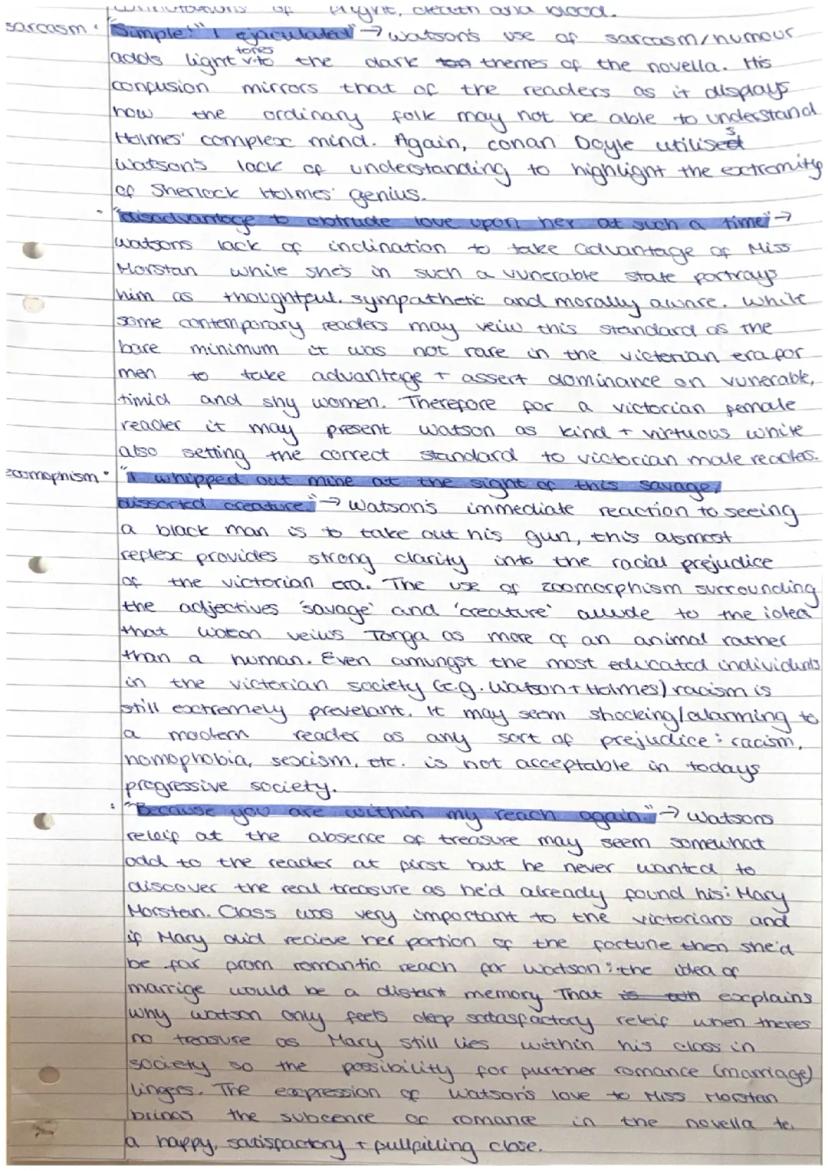 connotations of fright, death and blood.
sarcasm • "Simple!" I ejaculated" → Watson's use of sarcasm/humour
adds light tones to the dark themes of the novella. His
confusion mirrors that of the readers as it displays
how the ordinary folk may not be able to understand
Holmes' complex mind. Again, conan Doyle utilises
Watson's lack of understanding to highlight the extremity
of Sherlock Holmes' genius.
• "disadvantage to obtrude love upon her at such a time" →
Watsons lack of inclination to take advantage of Miss
Morstan while she's in such a vunerable state portrays
him as thoughtful, sympathetic and morally aware. While
some contemporary readers may veiw this standard as the
bare minimum it was not rare in the victorian era for
men to take advantage + assert dominance on vunerable,
timid and shy women. Therefore for a victorian female
reader it may present Watson as kind + virtuous while
also setting the correct standard to victorian male readers.
zoomophism • "I whipped out mine at the sight of this savage,
dissorted creature." → Watson's immediate reaction to seeing
a black man is to take out his gun, this almost
reflex provides strong clarity into the racial prejudice
of the victorian era. The use of zoomorphism surrounding
the adjectives 'savage' and 'creature' allude to the idea
that watson veiws Tonga as more of an animal rather
than a human. Even amungst the most educated individuals
in the victorian society (e.g. Watson + Holmes) racism is
still extremely prevelant. It may seem shocking/alarming to
a modern reader as any sort of prejudice: racism,
homophobia, sexism, etc. is not acceptable in todays
progressive society.
• "Because you are within my reach again." → Watsons
releif at the absence of treasure may seem somewhat
odd to the reader at first but he never wanted to
discover the real treasure as he'd already found his: Mary
Morstan. Class was very important to the victorians and
if Mary did recieve her portion of the fortune then she'd
be far from romantic reach for Watson: the idea of
marrige would be a distant memory That explains
why Watson only feels deep satasfactory releif when theres
no treasure as Mary still lies within his class in
society so the possibility for further romance (marriage)
lingers. The expression of Watson's love to Miss Morstan
brings the subgenre of romance in the novella to
a happy, satisfactory + fullfilling close.